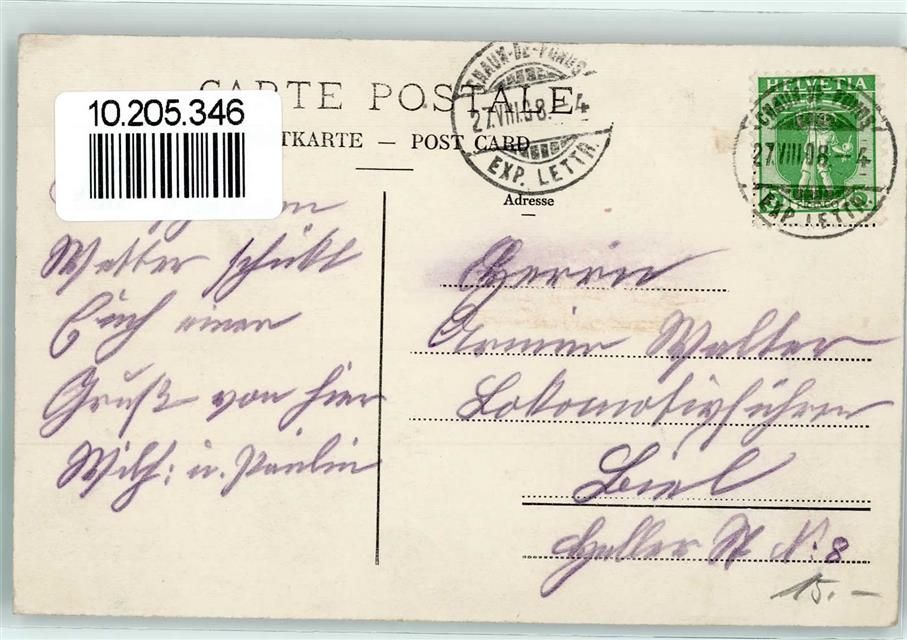 CARTE POSTALE
10.205.346
TKARTE — POST CARD
CHAUX-DE-FONDS
27.VIII.08.–4
EXP. LETTR.
HELVETIA
CHAUX-DE-FONDS
27.VIII.08.–4
EXP. LETTR.
Adresse
Wetter schickt
Euch einen
Gruß von hier
Wilh: u. Paulin
Herrn
Armin Walter
Lokomotivführer
Biel
Heller St N: 8
15.–